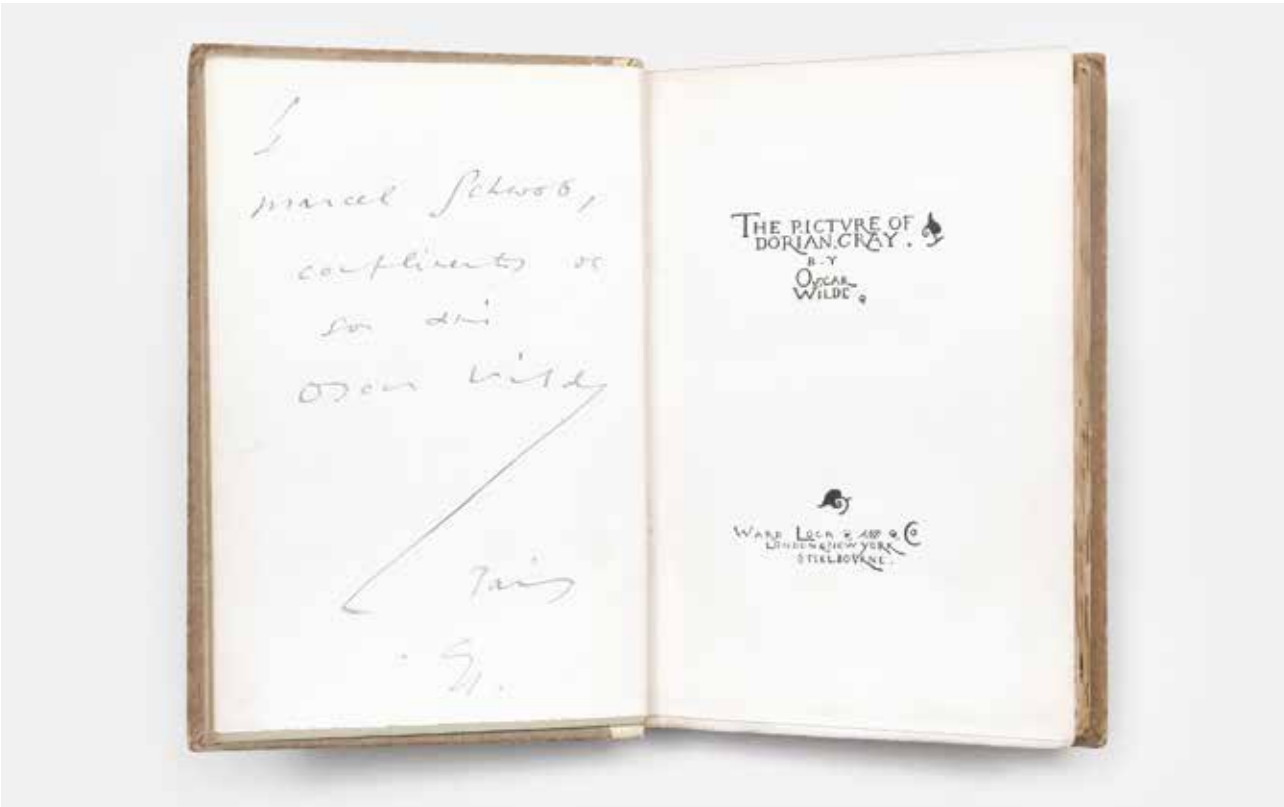 à
Marcel Schwob,
compliments de
son ami
Oscar Wilde
Paris
. 91.
THE PICTVRE OF
DORIAN.GRAY.
B.Y
OSCAR
WILDE
WARD LOCK & Co
LONDON & NEW YORK
& MELBOVRNE.